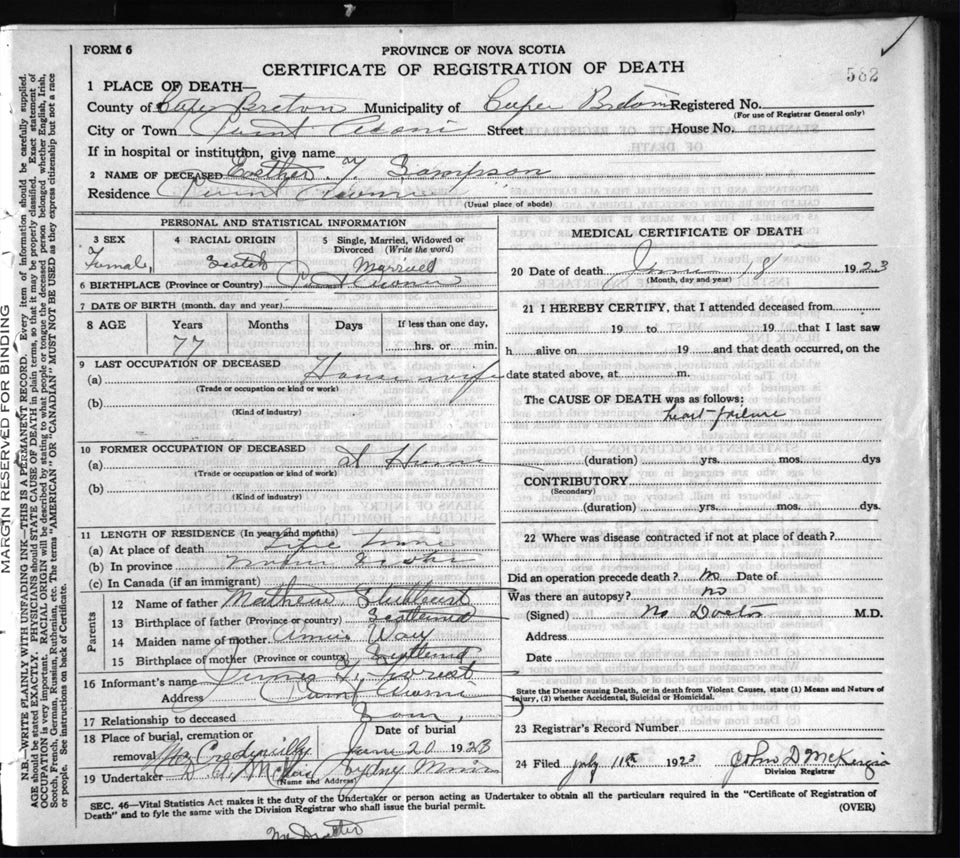 FORM 6
PROVINCE OF NOVA SCOTIA
CERTIFICATE OF REGISTRATION OF DEATH
582
1 PLACE OF DEATH—
County of Cape Breton Municipality of Cape Breton Registered No.
(For use of Registrar General only)
City or Town Point Street House No.
If in hospital or institution, give name
2 NAME OF DECEASED Esther Y Sampson
Residence Point "
(Usual place of abode)
PERSONAL AND STATISTICAL INFORMATION
3 SEX 4 RACIAL ORIGIN 5 Single, Married, Widowed or Divorced (Write the word)
Female, Scotch Married
6 BIRTHPLACE (Province or Country) Point
7 DATE OF BIRTH (month, day and year)
8 AGE Years Months Days If less than one day,
77 hrs. or min.
9 LAST OCCUPATION OF DECEASED
(a) House wife
(Trade or occupation or kind or work)
(b)
(Kind of industry)
10 FORMER OCCUPATION OF DECEASED
(a) at Home
(Trade or occupation or kind of work)
(b)
(Kind of industry)
11 LENGTH OF RESIDENCE (In years and months)
(a) At place of death Life time
(b) In province Nova Scotia
(c) In Canada (if an immigrant)
Parents
12 Name of father Mathew
13 Birthplace of father (Province or country) Scotland
14 Maiden name of mother Annie
15 Birthplace of mother (Province or country) Scotland
16 Informant's name
Address Point
17 Relationship to deceased
18 Place of burial, cremation or removal Date of burial
June 20 1923
19 Undertaker Sydney Mines
(Name and Address)
MEDICAL CERTIFICATE OF DEATH
20 Date of death June 18 1923
(Month, day and year)
21 I HEREBY CERTIFY, that I attended deceased from
19 to 19 that I last saw
h alive on 19 and that death occurred, on the
date stated above, at m.
The CAUSE OF DEATH was as follows:
heart failure
(duration) yrs. mos. dys
CONTRIBUTORY
(Secondary)
(duration) yrs. mos. dys.
22 Where was disease contracted if not at place of death?
Did an operation precede death? No Date of
Was there an autopsy? No
(Signed) No Doctor M.D.
Address
Date
State the Disease causing Death, or in death from Violent Causes, state (1) Means and Nature of Injury, (2) whether Accidental, Suicidal or Homicidal.
23 Registrar's Record Number
24 Filed July 11th 1923 John D McKenzie
Division Registrar
SEC. 46—Vital Statistics Act makes it the duty of the Undertaker or person acting as Undertaker to obtain all the particulars required in the "Certificate of Registration of
Death" and to fyle the same with the Division Registrar who shall issue the burial permit.
(OVER)
No Doctor
MARGIN RESERVED FOR BINDING
N.B.—WRITE PLAINLY WITH UNFADING INK—THIS IS A PERMANENT RECORD. Every item of information should be carefully supplied.
AGE should be stated EXACTLY. PHYSICIANS should STATE CAUSE OF DEATH in plain terms, so that it may be properly classified. Exact statement of
OCCUPATION is very important. RACIAL ORIGIN will be described by stating to what people or tongue the deceased person belonged whether English, Irish,
Scotch, French, German, Russian, Ruthenian, etc. The terms "AMERICAN" OR "CANADIAN" MUST NOT BE USED as they express citizenship but not a race
or people. See instructions on back of Certificate.